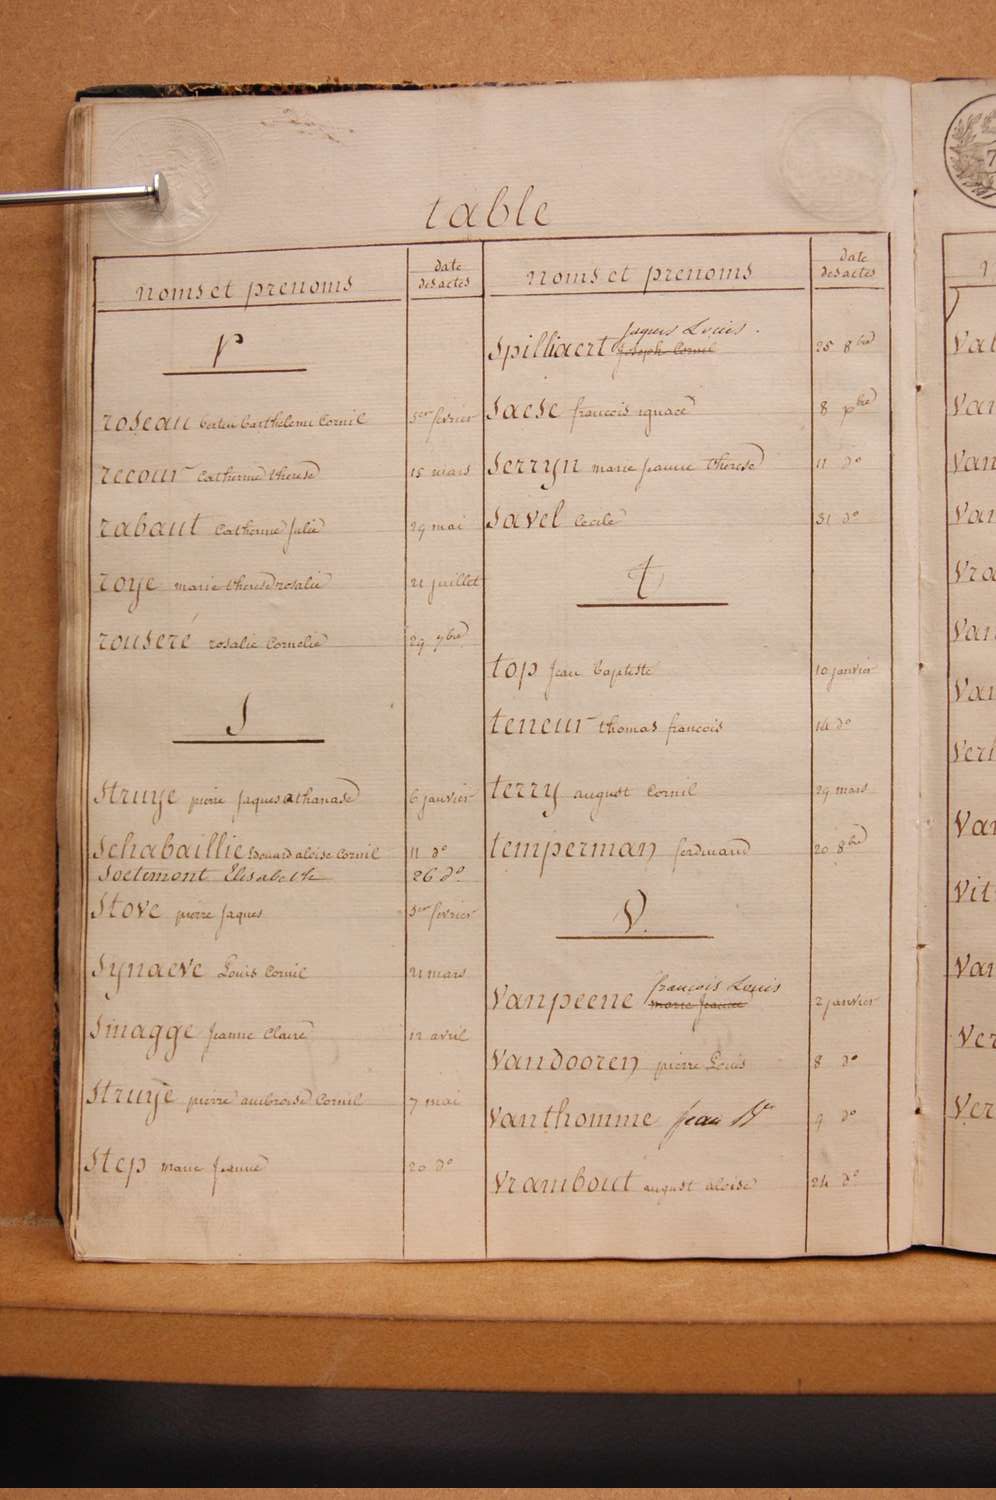 table
noms et prenoms
date
des actes
r
roseau bertin barthelemi Cornil 5er fevrier
recour Catherine therese 15 mars
rabaut Catherine Julie 29 mai
roye marie therese rosalie 21 juillet
rouseré rosalie Cornelie 29 9bre
S
Struye pierre Jaques athanase 6 janvier
Schabaillie Edouard aloise Cornil 11 do
Soetimont Elisabeth 26 do
Stove pierre Jaques fevrier
Synaeve Louis Cornil 21 mars
Sinagge Jeanne Claire 12 avril
Struye pierre ambroise Cornil 7 mai
Step marie Jeanne 20 do
noms et prenoms
date
des actes
Jaques Louis.
Spilliaert Joseph Cornil 25 8bre
Saese francois ignace 8 xbre
Serryn marie jeanne therese 11 do
Savel Cecile 31 do
t
top Jean baptiste 10 janvier
teneur thomas francois 14 do
terry august Cornil 29 mars
temperman ferdinand 20 8bre
V.
françois Louis
Vanpeene marie jeanne 2 janvier
Vandooren pierre Louis 8 do
Vanthomme Jean Bte 9 do
Vrambout august aloise 24 do